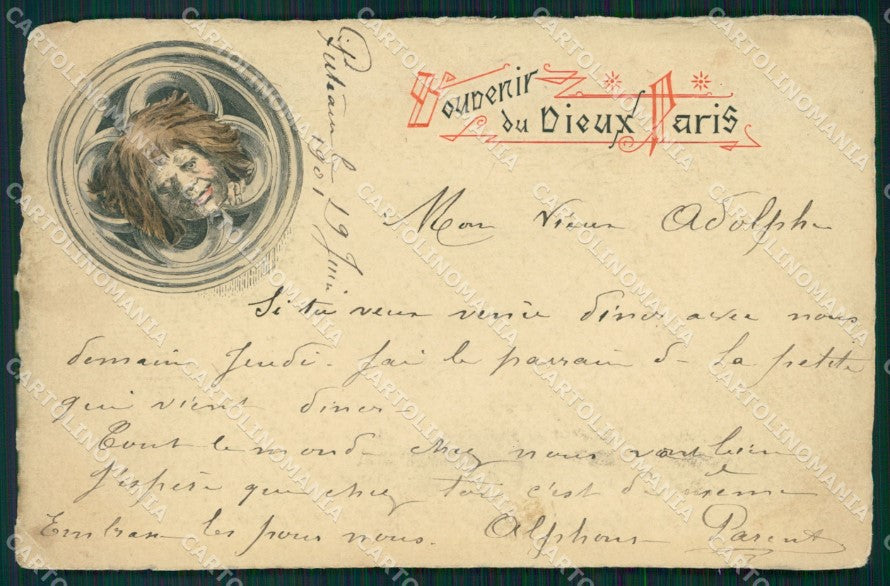 Souvenir
du Vieux Paris
Puteaux le 19 Juin
1901
Mon Vieux Adolphe
Si tu veux venir diner avec nous
demain Jeudi. j'ai le parrain de la petite
qui vient diner.
Tout le monde chez nous va bien
J'espère que chez toi c'est de même
Embrasse les pour nous. Alphonse Parent
CARTOLINOMANIA